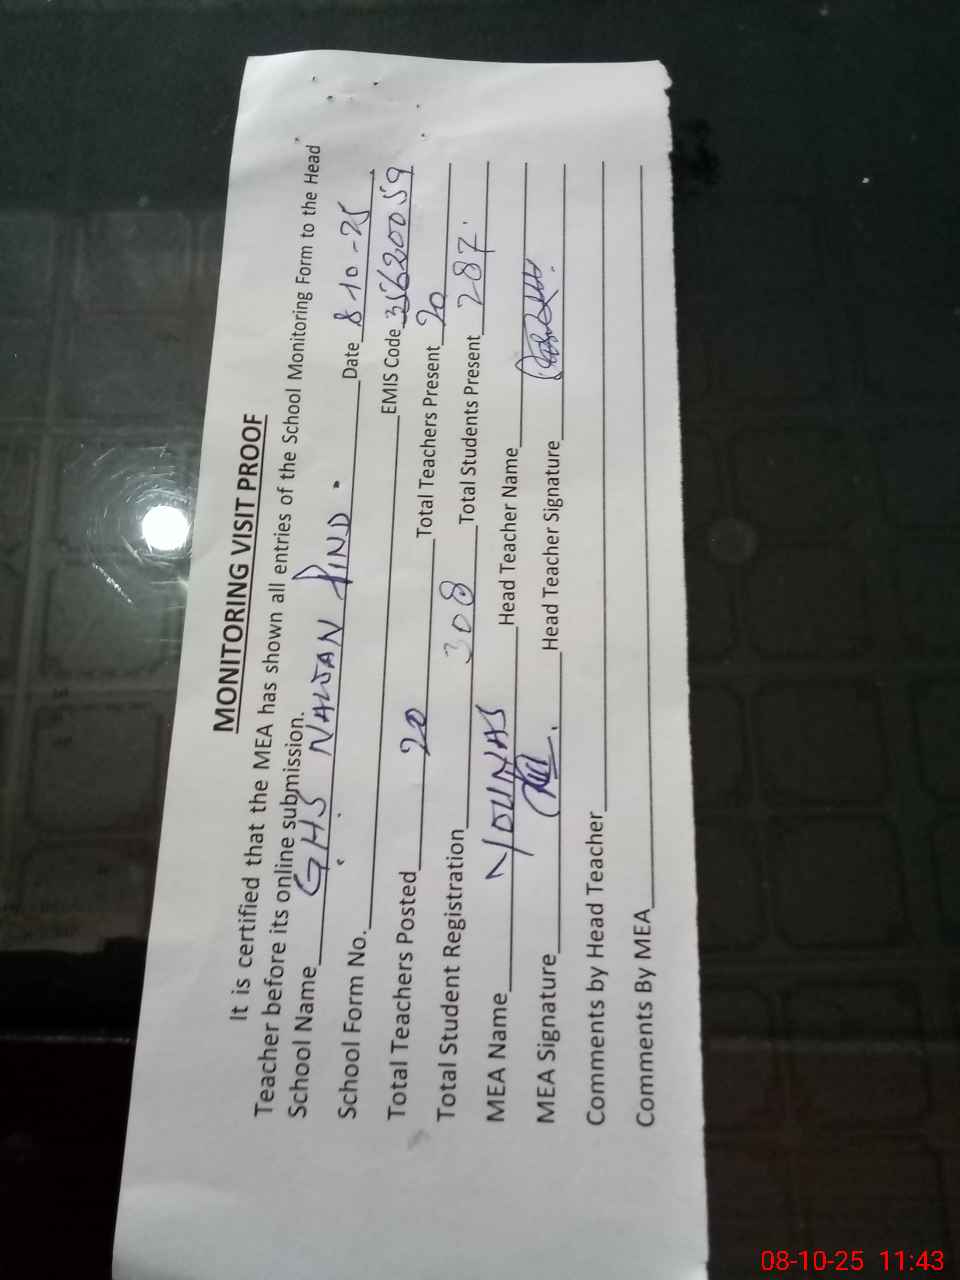 MONITORING VISIT PROOF
It is certified that the MEA has shown all entries of the School Monitoring Form to the Head
Teacher before its online submission.
School Name GHS NAWAN PIND. Date 8-10-25
School Form No. EMIS Code 35620059
Total Teachers Posted 20 Total Teachers Present 20
Total Student Registration 308 Total Students Present 287
MEA Name YOUNAS Head Teacher Name
MEA Signature Head Teacher Signature
Comments by Head Teacher
Comments By MEA
08-10-25 11:43